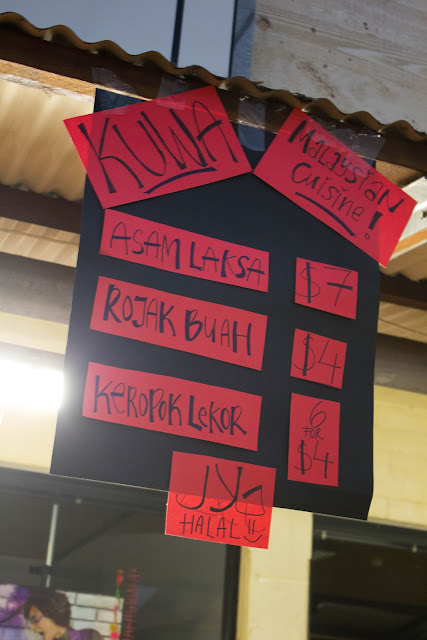 KUWA
Malaysian
Cuisine!
ASAM LAKSA $7
ROJAK BUAH $4
KEROPOK LEKOR 6 FOR $4
HALAL